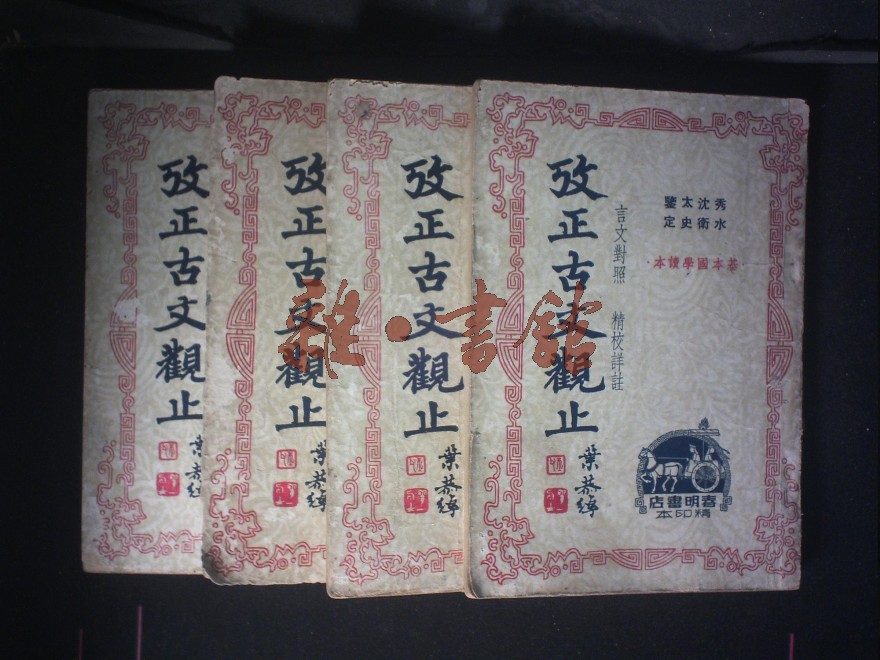 秀水
沈衛
太史
鑒定
基本國學讀本
言文對照 精校詳註
攷正古文觀止
葉恭綽
春明書店
精印本
攷正古文觀止
葉恭綽
攷正古文觀止
葉恭綽
攷正古文觀止
葉恭綽
雜·書館